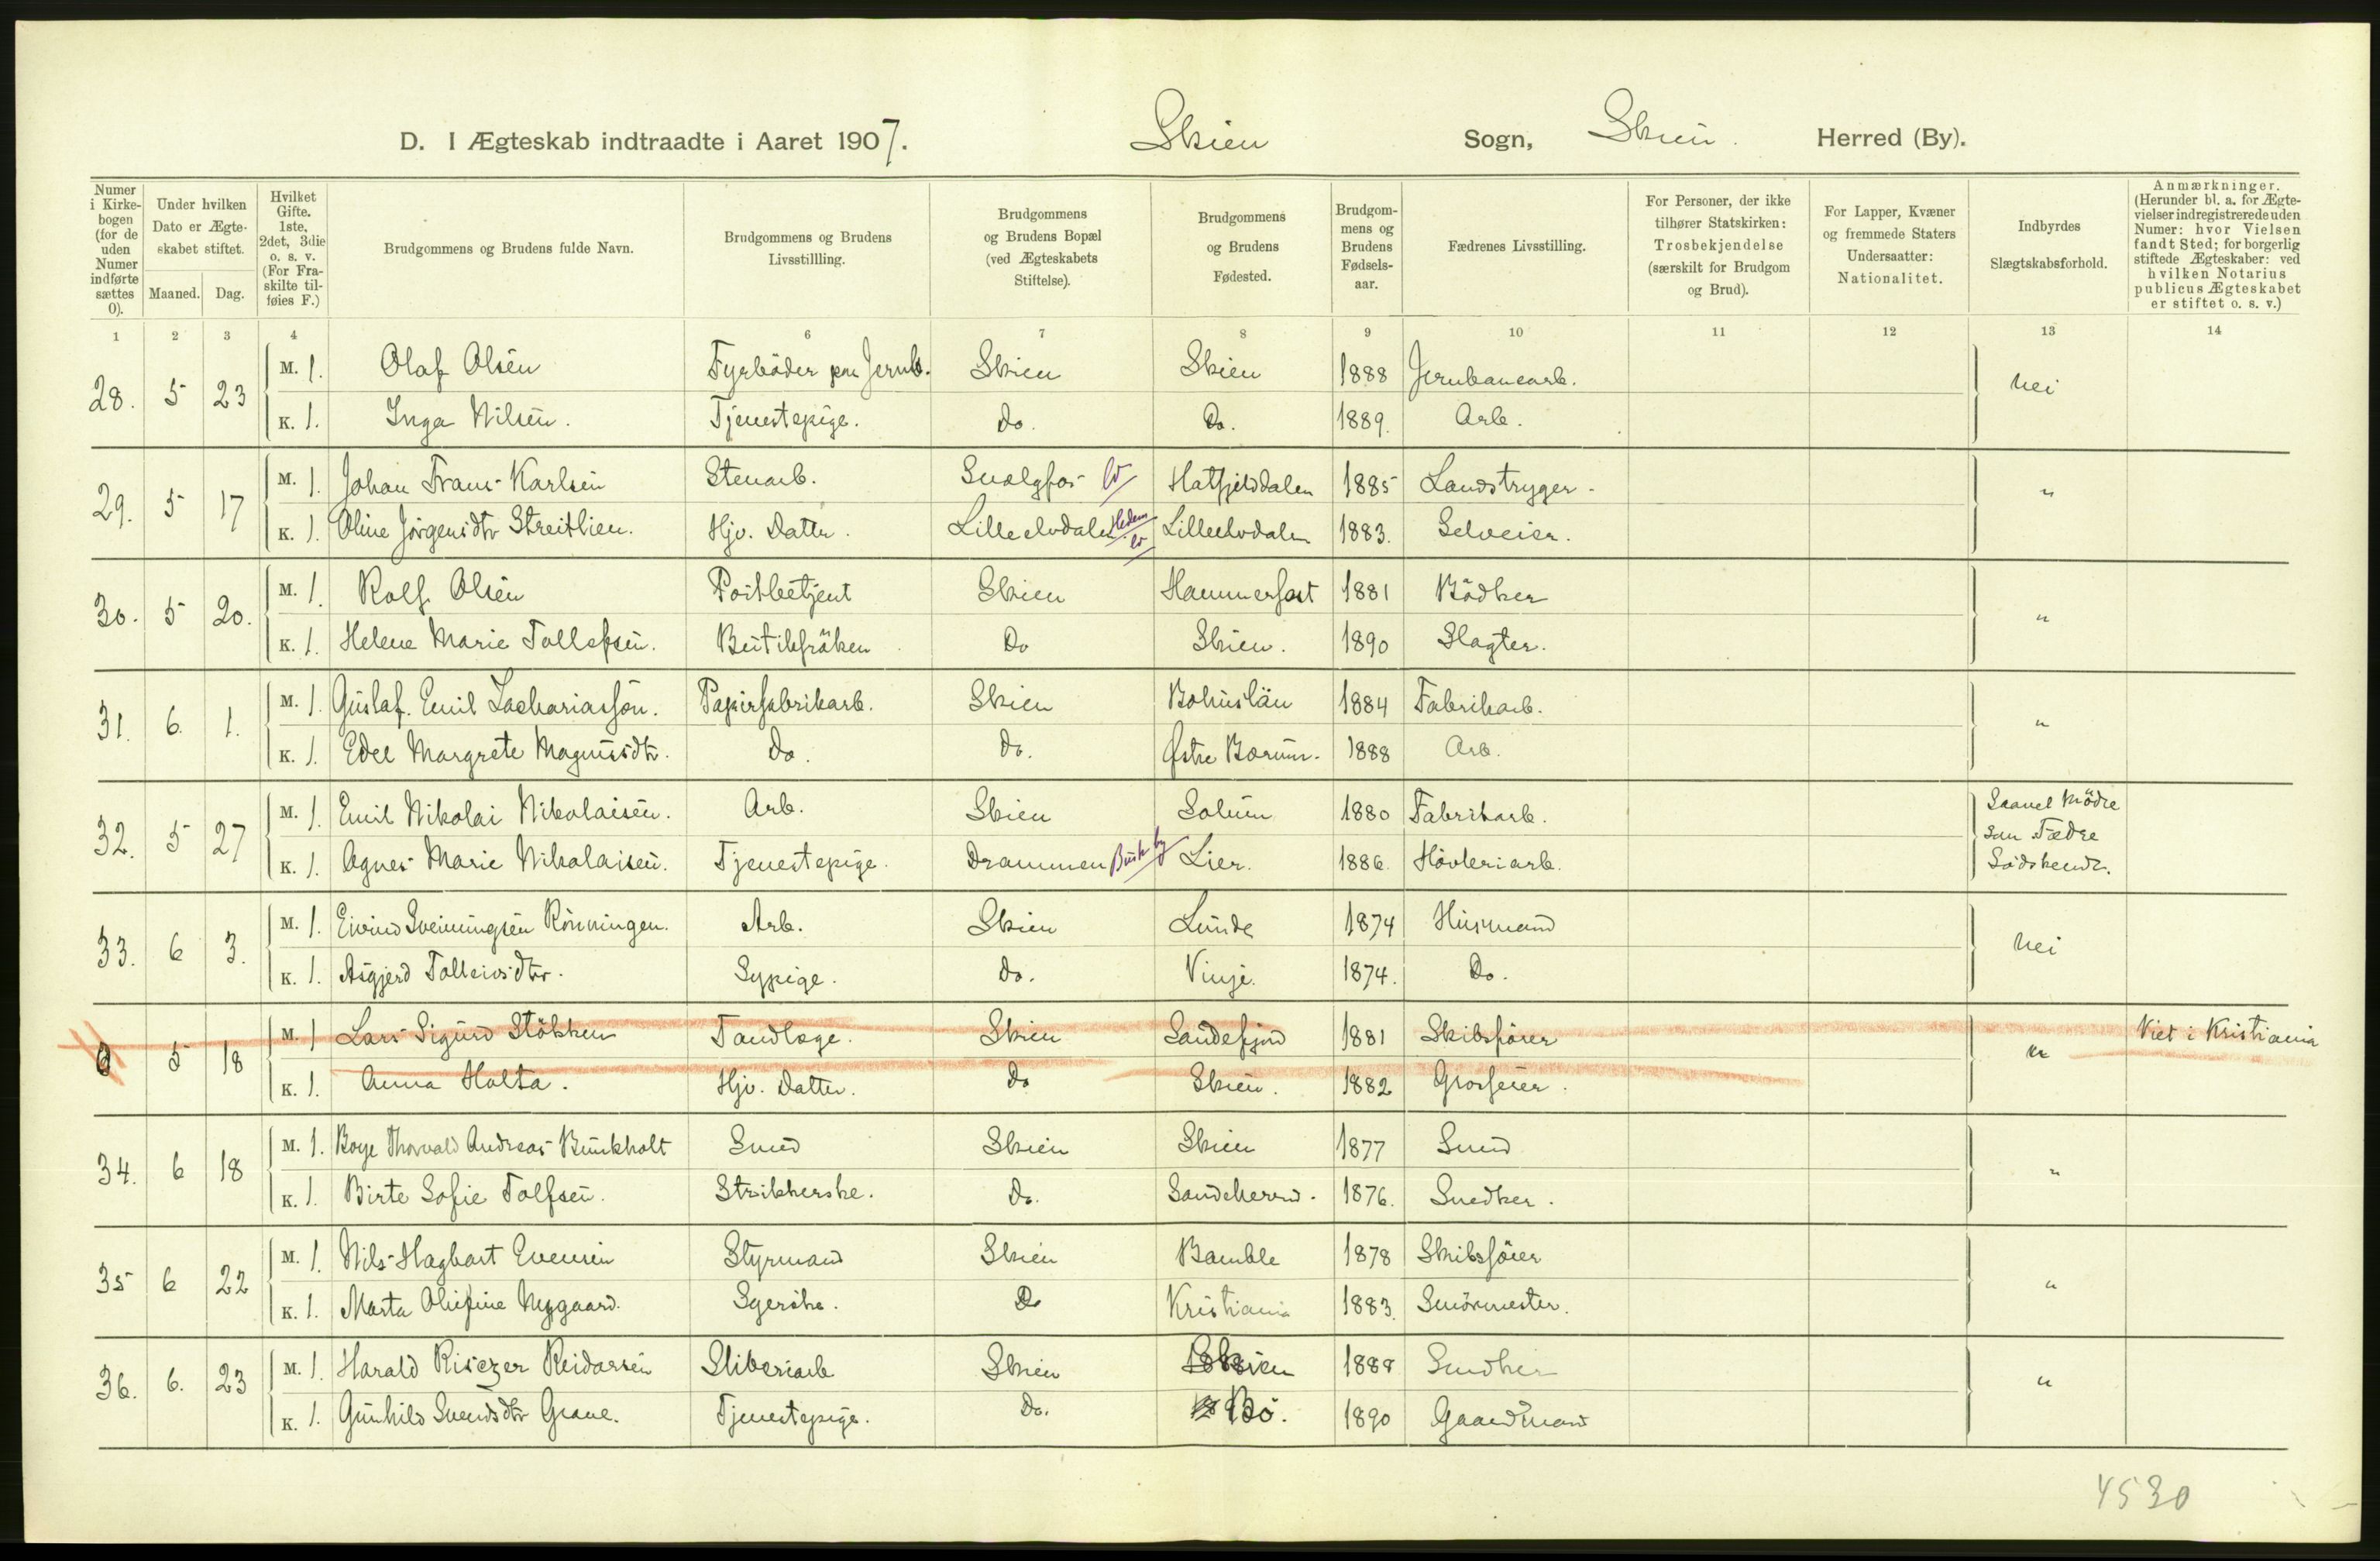 D. I Ægteskab indtraadte i Aaret 1907. Skien Sogn, Skien. Herred (By).
Numer i Kirkebogen (for de uden Numer indførte sættes 0).
Under hvilken Dato er Ægteskabet stiftet.
Maaned. Dag.
Hvilket Gifte. 1ste, 2det, 3die o. s. v. (For Fraskilte tilføies F.)
Brudgommens og Brudens fulde Navn.
Brudgommens og Brudens Livsstillling.
Brudgommens og Brudens Bopæl (ved Ægteskabets Stiftelse).
Brudgommens og Brudens Fødested.
Brudgommens og Brudens Fødselsaar.
Fædrenes Livsstilling.
For Personer, der ikke tilhører Statskirken: Trosbekjendelse (særskilt for Brudgom og Brud).
For Lapper, Kvæner og fremmede Staters Undersaatter: Nationalitet.
Indbyrdes Slægtskabsforhold.
Anmærkninger. (Herunder bl. a. for Ægtevielser indregistrerede uden Numer: hvor Vielsen fandt Sted; for borgerlig stiftede Ægteskaber: ved hvilken Notarius publicus Ægteskabet er stiftet o. s. v.)
1 2 3 4 6 7 8 9 10 11 12 13 14
28. 5 23 M. 1. Olaf Olsen Fyrbøder paa Jernb. Skien Skien 1888 Jernbanearb. Nei
K. 1. Inga Nilsen. Tjenestepige. do. Do. 1889. Arb.
29. 5 17 M. 1. Johan Frans Karlsen Stenarb. Snalgfos Hatfjelddalen 1885 Landstryger. "
K. 1. Oline Jörgensdtr Streitlien. Hjv. Datter. Lilleelvdalen Hedm Lilleelvdalen 1883. Selveier.
30. 5 20. M. 1. Rolf Olsen Postbetjent Skien Hammerfest 1881 Bödker "
K. 1. Helene Marie Tollefsen. Butikfröken Do Skien. 1890 Slagter.
31. 6. 1. M. 1. Gustaf Emil Zachariasson. Papirfabrikarb. Skien Bohuslän 1884 Fabrikarb. "
K. 1. Edel Margrete Magnusdtr. Do. do. Østre Bærum. 1888 Arb.
32. 5 27 M. 1. Emil Nikolai Nikolaisen. Arb. Skien Solum 1880 Fabrikarb. Saavel Mödre
som Fædre
K. 1. Agnes Marie Nikolaisen. Tjenestepige. Drammen Busk by Lier. 1886. Hövleriarb. Södskende.
33. 6 3. M. 1. Eivind Sveinungsen Rönningen. Arb. Skien Lunde 1874 Husmand Nei
K. 1. Asgjerd Tolleivsdtr. Sypige. do. Vinje. 1874. Do.
0 5 18 M. 1 Lars Sigurd Stökken Tandlæge. Skien Sandefjord 1881 Skibsförer " Viet i Kristiania
K. 1. Anna Holta. Hjv. Datter. do Skien. 1882 Grosserer.
34. 6 18 M. 1. Boye Thorvald Andreas Bunkholt Smed Skien Skien 1877 Smed "
K. 1. Birte Sofie Tolfsen. Strikkerske. Do. Sandeherred. 1876. Snedker.
35 6 22 M. 1. Nils Hagbart Evensen Styrmand Skien Bamble 1878 Skibsförer "
K. 1. Marta Olufine Nygaard. Syerske. Do Kristiania 1883. Smörmester.
36. 6. 23 M. 1. Harald Reidarsen Sliberiarb Skien Skien 1888 Snedker "
K. 1. Gunhild Svendsdtr Grave. Tjenestepige. Do. Bö. 1890 Gaardmand
4530